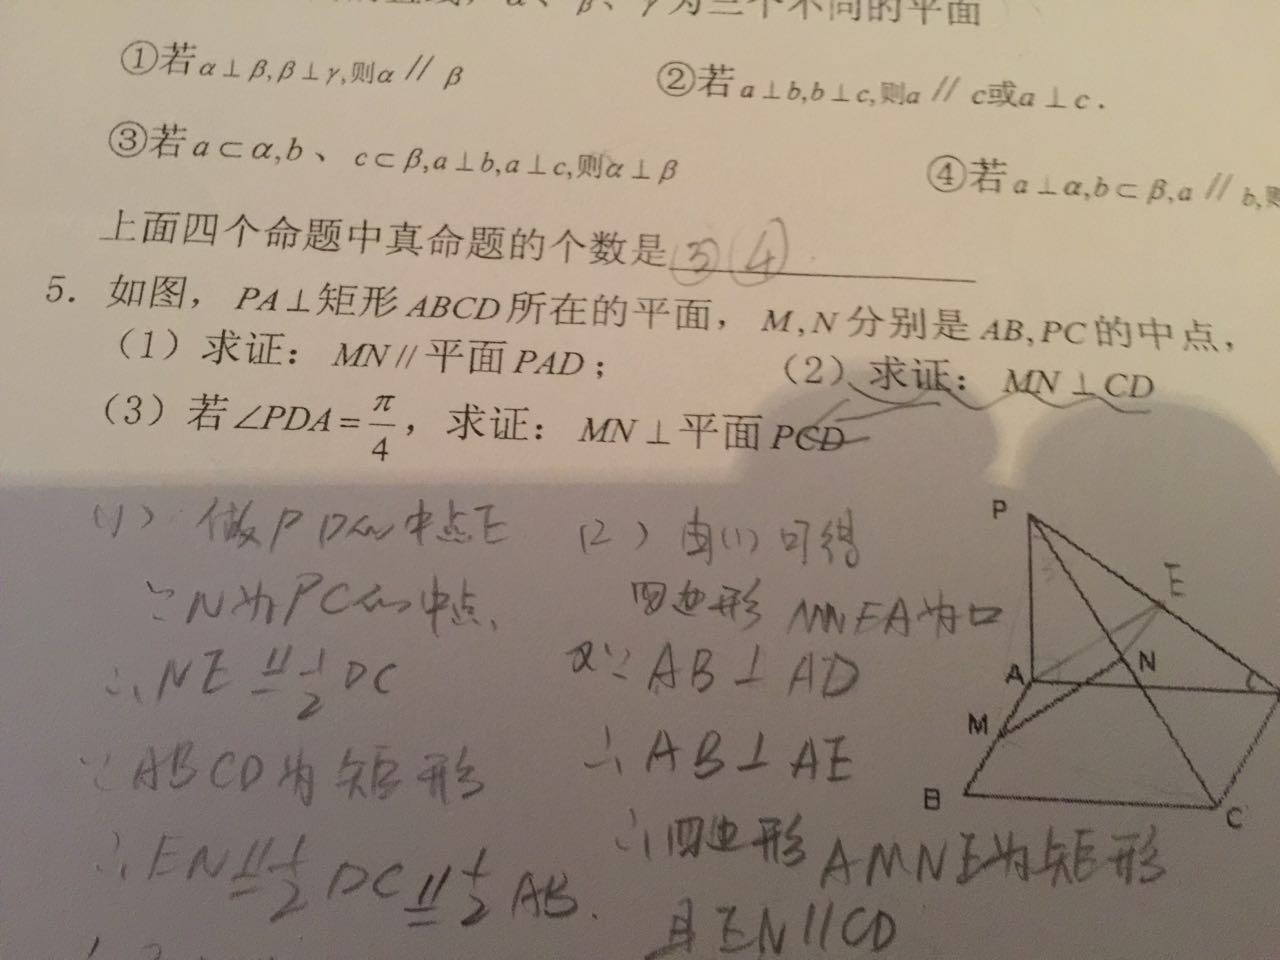 α、β、γ为三个不同的平面
①若α⊥β,β⊥γ,则α∥β ②若a⊥b,b⊥c,则a∥c或a⊥c.
③若a⊂α,b、c⊂β,a⊥b,a⊥c,则α⊥β ④若a⊥α,b⊂β,a∥b,则
上面四个命题中真命题的个数是③④
5. 如图，PA⊥矩形ABCD所在的平面，M,N分别是AB,PC的中点，
（1）求证：MN∥平面PAD； （2）求证：MN⊥CD
（3）若∠PDA=π/4，求证：MN⊥平面PCD
(1) 做PD的中点E
∵N为PC的中点、
∴NE∥=1/2DC
∵ABCD为矩形
∴EN∥=1/2DC∥=1/2AB.
(2) 由(1)可得
四边形MNEA为▱
又∵AB⊥AD
∴AB⊥AE
∴四边形AMNE为矩形
且EN∥CD
P
E
A
N
M
B
C